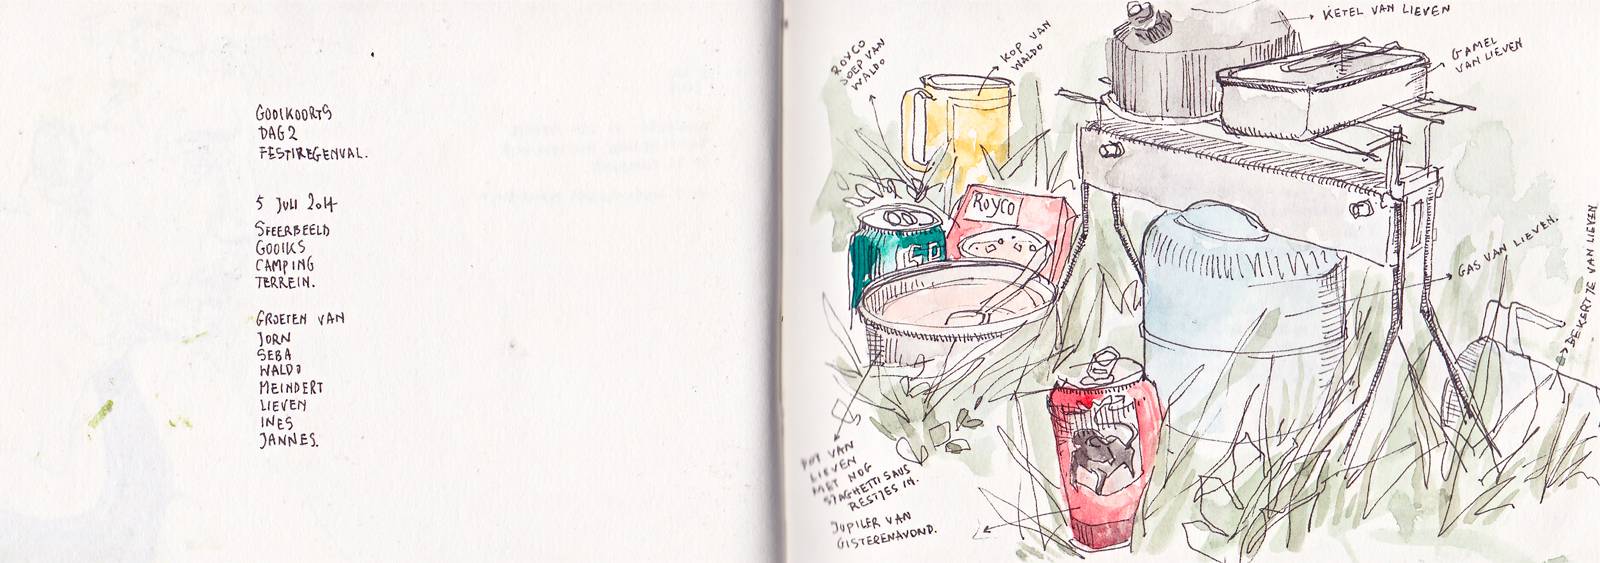 GOOIKOORTS
DAG 2
FESTIREGENVAL.
5 JULI 2014
SFEERBEELD
GOOIKS
CAMPING
TERREIN.
GROETEN VAN
JORN
SEBA
WALDO
MEINDERT
LIEVEN
INES
JANNES.
ROYCO
SOEP VAN
WALDO
KOP VAN
WALDO
KETEL VAN LIEVEN
GAMEL
VAN LIEVEN
Royco
GAS VAN LIEVEN.
BEKERTJE VAN LIEVEN
POT VAN
LIEVEN
MET NOG
SPAGHETTI SAUS
RESTJES IN.
JUPILER VAN
GISTERENAVOND.